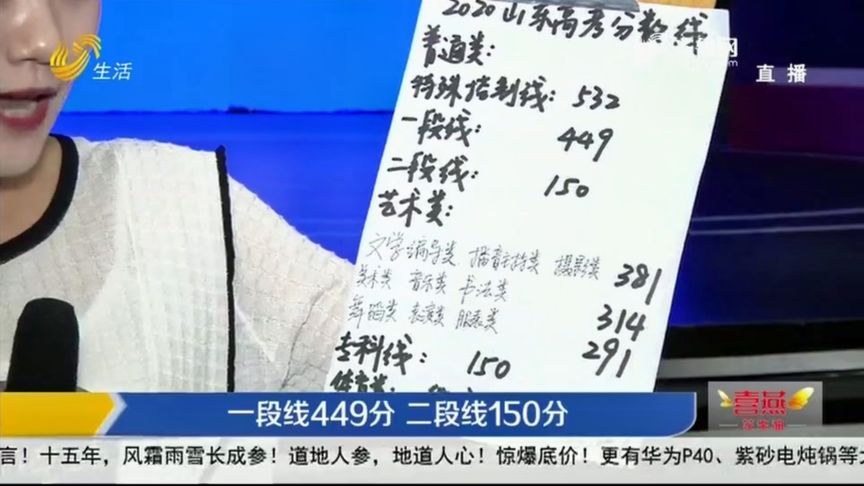 2020山东高考分数线
生活
直播
普通类:
特殊控制线: 532
一段线: 449
二段线: 150
艺术类:
文学编导类、播音主持类 摄影类 381
美术类 音乐类 书法类
舞蹈类 表演类 服表类 314
291
专科线: 150
体育类:
一段线449分 二段线150分
喜燕
言！十五年，风霜雨雪长成参！道地人参，地道人心！惊爆底价！更有华为P40、紫砂电炖锅等